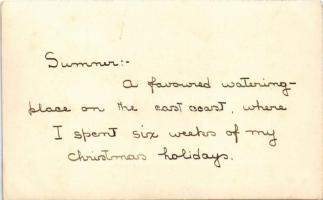 Summer:-
A favoured watering-
place on the east coast, where
I spent six weeks of my
Christmas holidays.